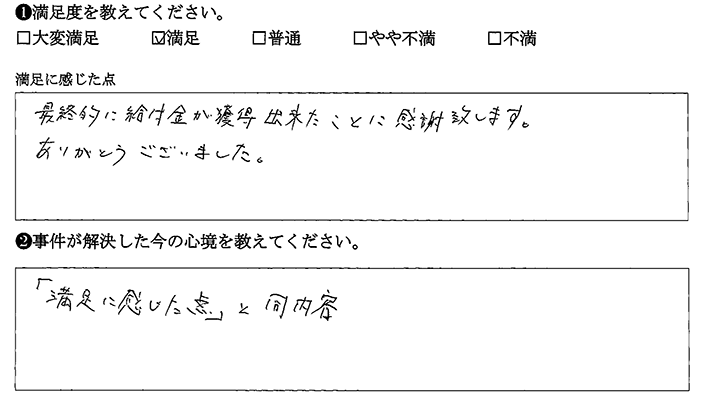 ❶満足度を教えてください。
□大変満足 ☑満足 □普通 □やや不満 □不満
満足に感じた点
最終的に給付金が獲得出来たことに感謝致します。
ありがとうございました。
❷事件が解決した今の心境を教えてください。
「満足に感じた点」と同内容